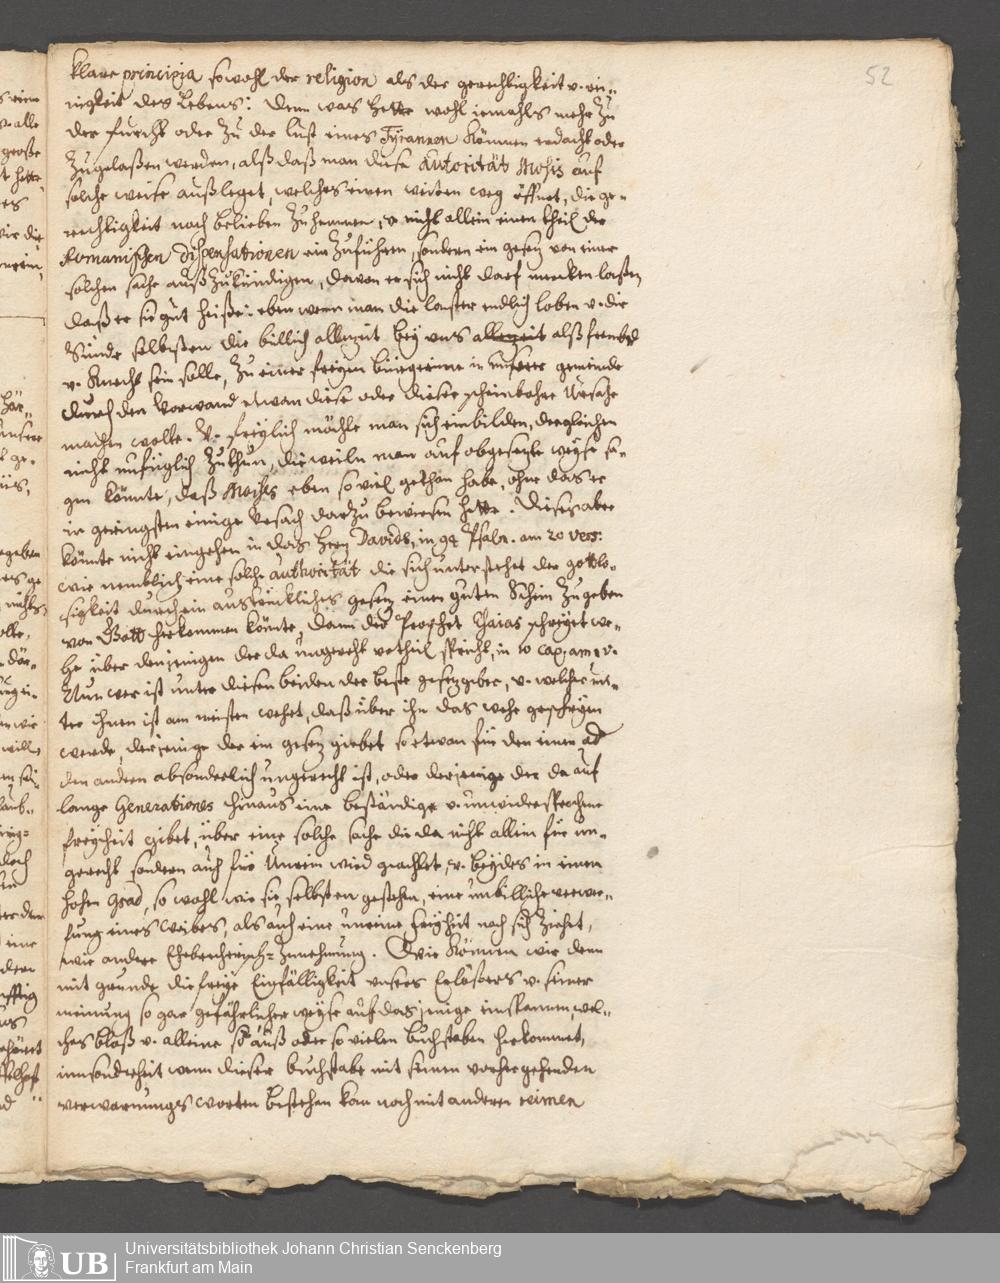 52
klare principia sowohl der religion als der gerechtigkeit v. ei¬
nigkeit des Lebens: Denn was hette wohl iemahls mehr zu
der furcht oder zu der lust eines Tÿrannen können erdacht oder
zugelaßen werden, alß daß man diese Autorität Mosis auf
solche weise außleget, welches einen weiten weg öffnet, die ge¬
rechtigkeit nach belieben zu hemmen, v. nicht allein einen theil der
Romanischen Dispensationen ein zuführen, sondern ein gesez von einer
solchen sache außzukündigen, davon er sich nicht darf mercken laßen,
daß er sie gut heiße: eben wenn man die laster endlich loben v. die
Sünde selbsten die billich allezeit bey uns allezeit alß frembd
v. Knecht sein solle, zu einer freyen bürgerinne in unserer gemeinde
durch den Vorwand etwan diese oder dieser scheinbahre Ursache
machen wolte. V. freylich möchte man sich einbilden, dergleichen
nicht unfüglich zu thun, dieweiln man auf obgesezte weÿse sa¬
gen könnte, daß Moises eben so viel gethan habe, ohne das er
in geringsten einige Ursach darzu bewiesen hette. Dieses aber
könnte nicht eingehen in das Herz Davids, in 94 Psalm. am 20 vers:
wie nemblich eine solche authorität die sich unterstehet der gottlo¬
sigkeit durch ein austrückliches gesez einen guten Schein zu geben
von Gott herkommen könnte, dann der Prophet Esaias schreÿet we¬
he über denjenigen der da ungerecht urtheil spricht, in 10 cap: am 1 v.
Nun wer ist unter diesen beiden der beste gesezgeber, v. welcher un¬
ter ihnen ist am meisten wehrt, daß über ihn das wehe geschrÿen
werde, derjenige der im gesez giebet so etwan für den einen od
den andern absonderlich ungerecht ist, oder derjenige der da auf
lange Generationes hinaus eine beständige v. unwidersprechene
freyheit gibet, über eine solche sache die da nicht allein für un¬
gerecht sondern auch für Unrein wird geachtet, v. beÿdes in einem
hohen Grad, so wohl wie sie selbsten gestehen, eine unbilliche verwer¬
fung eines Weibes, als auch eine unreine freÿheit nach sich ziehet,
wie andere Ehebrecherisch= Zunehmung. Wie können wir denn
mit grunde die freÿe Einfältigkeit unsers Erlößers v. seiner
meinung so gar gefährlicher weÿse auf das jenige einspannen, wel¬
ches bloß v. alleine so auß oder so vielen buchstaben herkommet,
innsonderheit wenn dieser buchstabe mit seinen vorhergehenden
verwarnungs worten bestehen kan noch mit anderen reimen
Universitätsbibliothek Johann Christian Senckenberg
Frankfurt am Main
UB